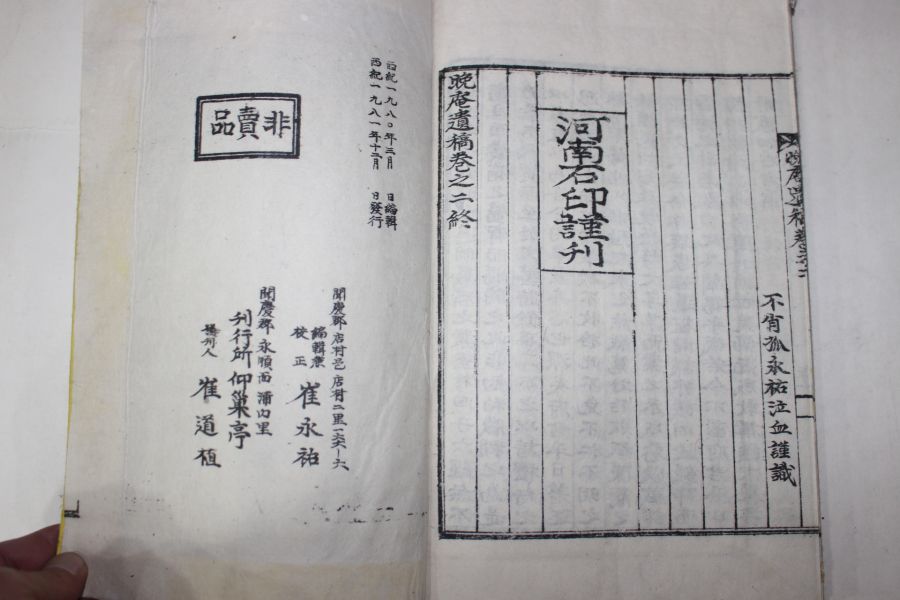 晚庵遺稿卷之二
不肖孤永祐泣血謹識
河南石印謹刊
晚庵遺稿卷之二終
西紀一九八〇年三月 日編輯
西紀一九八一年十二月 日發行
非賣品
聞慶郡店村邑店村二里一六六-六
編輯兼
校正
崔永祐
聞慶郡永順面浦內里
刊行所仰巢亭
發行人 崔道植